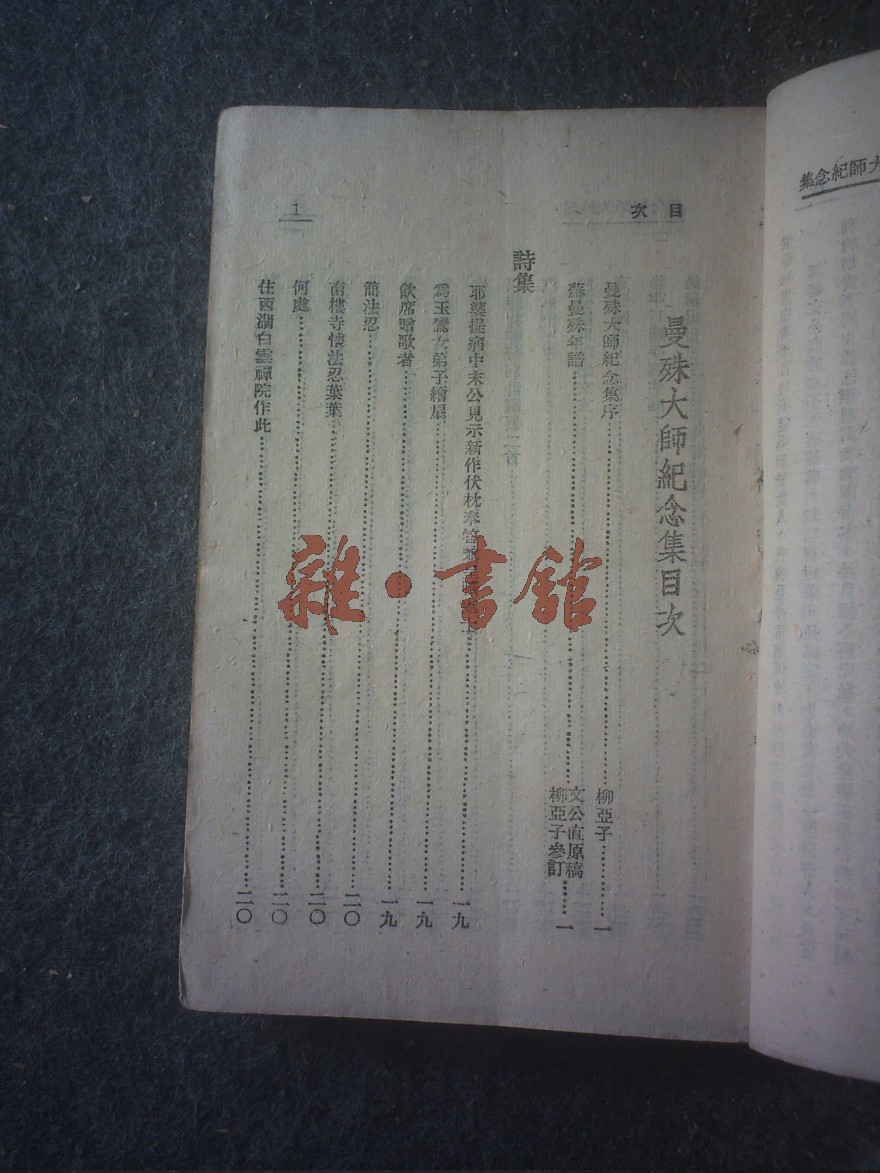 大師紀念集
目次
1
曼殊大師紀念集目次
曼殊大師紀念集序……柳亞子……一
蘇曼殊年譜……文公直原稿 柳亞子參訂……一
詩集
耶婆提病中末公見示新作伏枕奉答……一九
爲玉鸞女弟子繪扇……一九
飲席贈歌者……一九
簡法忍……二〇
南樓寺懷法忍葉葉……二〇
何處……二〇
住西湖白雲禪院作此……二〇
雜·書館